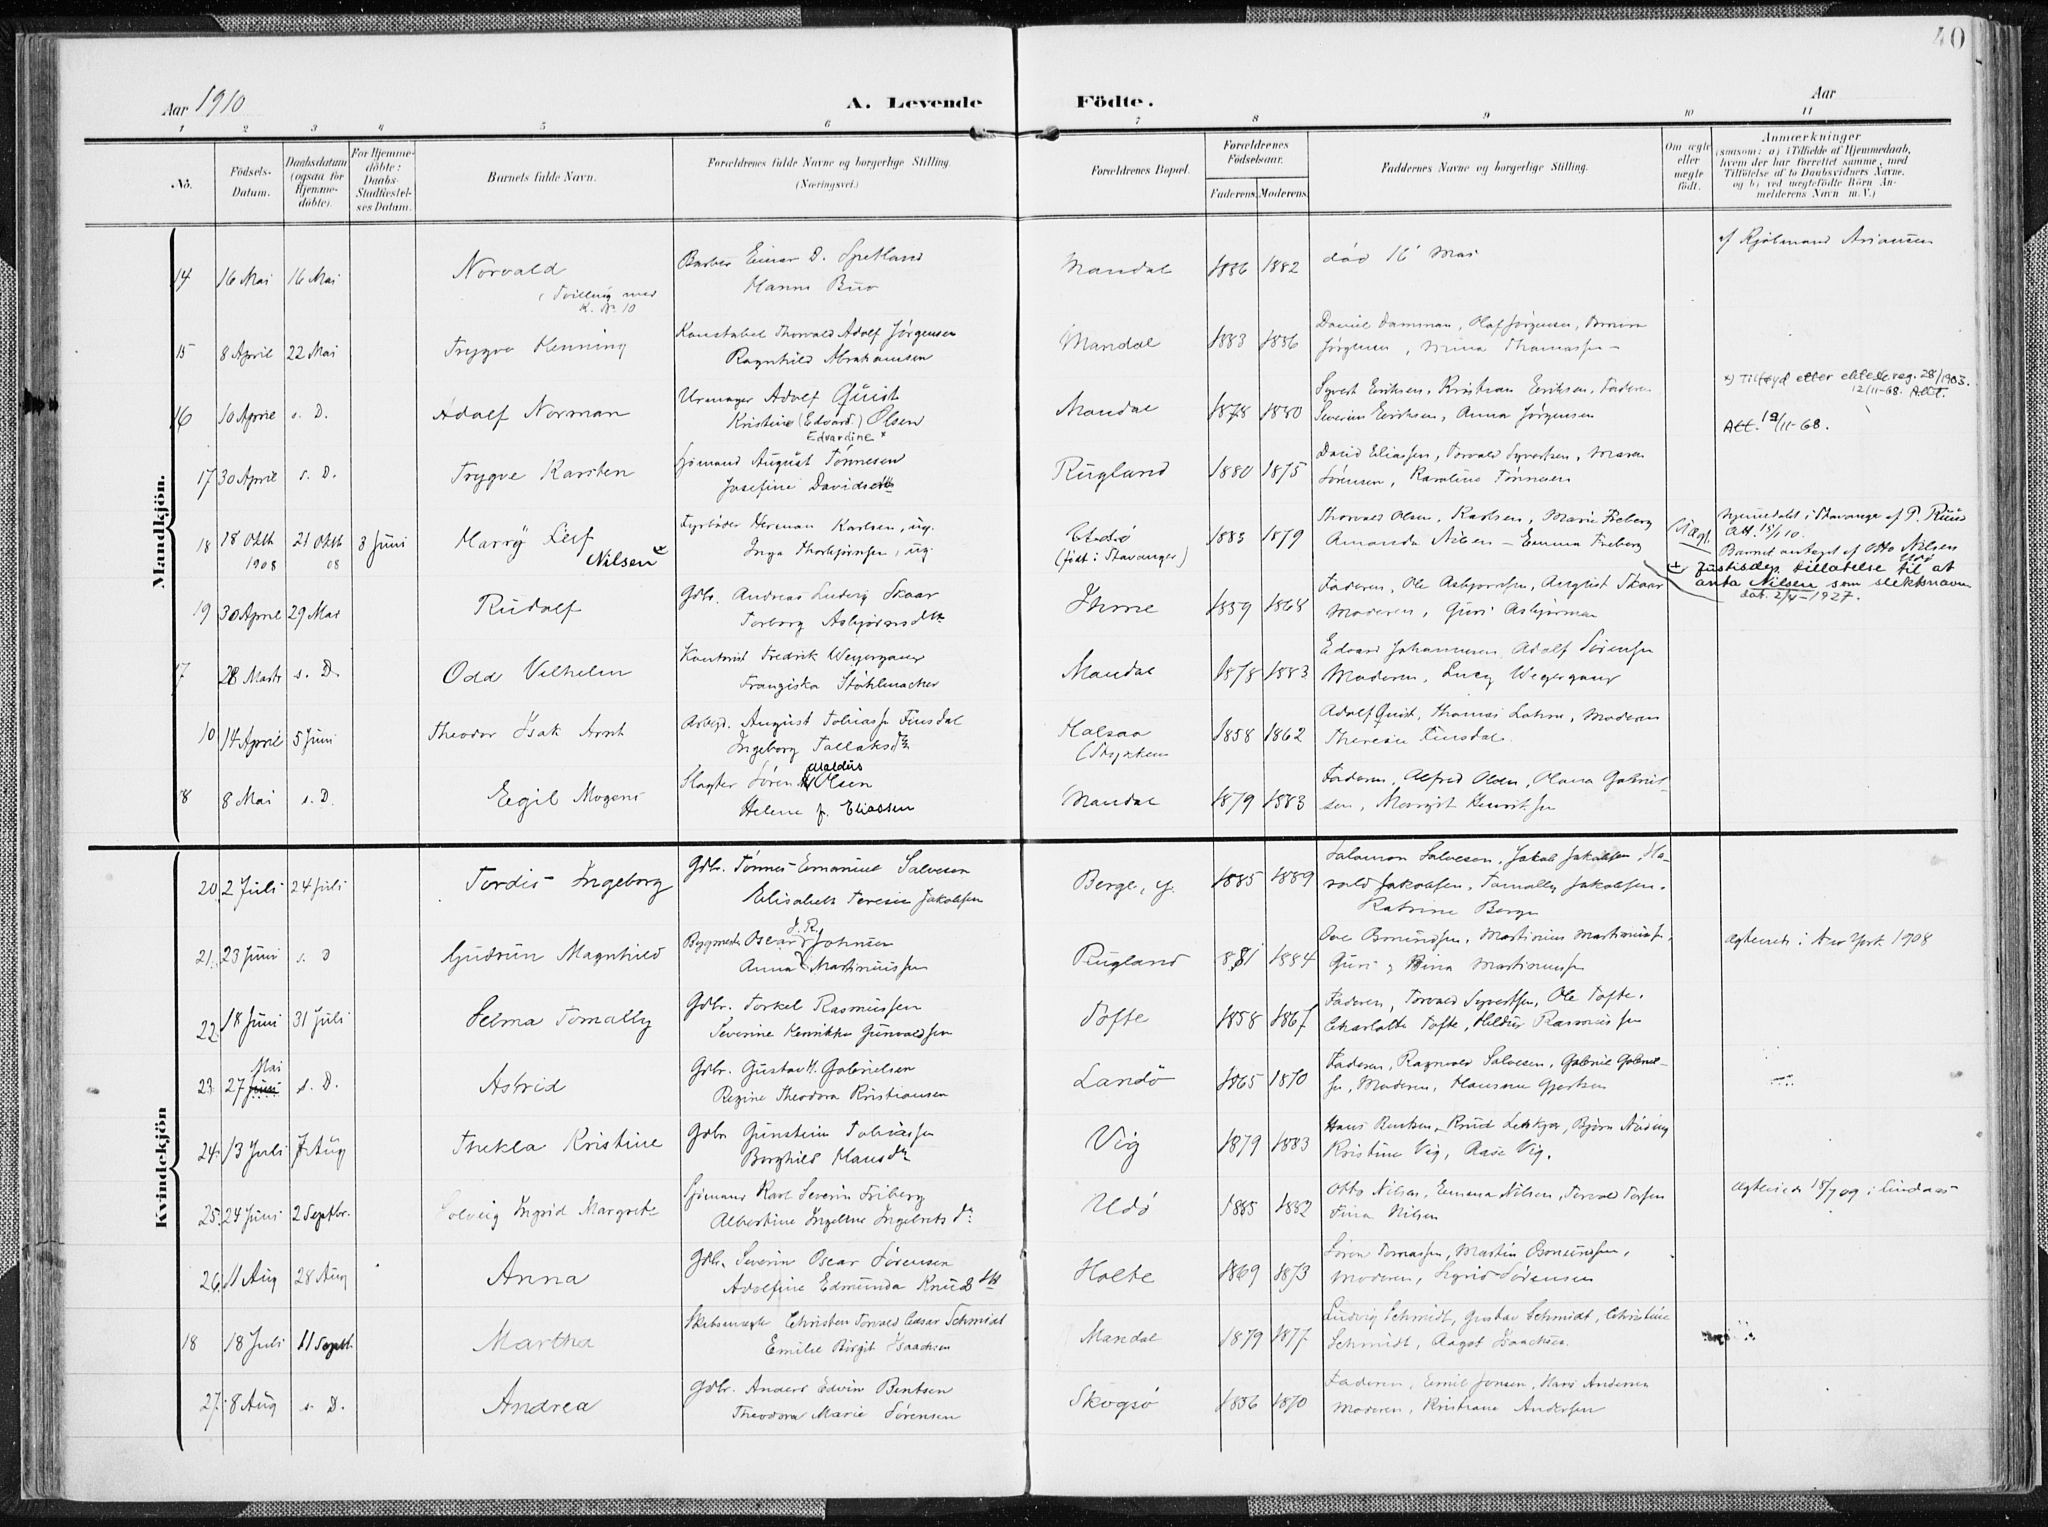 40
Aar 1910
A. Levende Födte.
Aar
1 2 3 4 5 6 7 8 9 10 11
No.
Födsels-Datum.
Daabsdatum (ogsaa for Hjemme-döbte).
For Hjemme-döbte: Daabs-Stadfæstel-ses Datum.
Barnets fulde Navn.
Forældrenes fulde Navne og borgerlige Stilling.
(Næringsvei.)
Forældrenes Bopæl.
Forældrenes Födselsaar.
Faderens. Moderens.
Faddernes Navne og borgerlige Stilling.
Om ægte eller uægte födt.
Anmærkninger
(saasom: a) i Tilfælde af Hjemmedaab,
hvem der har forrettet samme, med
Tilföielse af to Daabsvidners Navne,
og b) ved uægtefödte Börn An-
melderens Navn m. V.)
Mandkjön.
af Hjelmand Arianson
14 16 Mai 16 Mai Norvald Barber Einar D. Spetland Mandal 1886 1882 død 16 Mai
(Tvilling med Hanna Buo
K. No 10
15 8 April 22 Mai Trygve Henning Konstabel Thorvald Adolf Jørgensen Mandal 1883 1886 Daniel Damman, Olaf Jørgensen,
Ragnhild Abrahamsen Jørgensen, Mina Thomassen
16 10 April s. D. Adolf Norman Urmager Adolf Quist Mandal 1878 1880 Syvert Eriksen, Kristian Eriksen, Faderen
Kristine (Edvard.) Olsen Severin Eriksen, Anna Jørgensen
Edvardine x
x) Tilføyd etter ekteskreg. 28/1903.
12/11-68.
Att. 19/11-68.
17 30 April s. D. Trygve Karsten Sjømand August Tønnesen Rugland 1880 1875 David Eliassen, Torvald Syvertsen, Maren
Josefine Davidsen Sørensen, Karoline Tønnesen
18 18 Okth 1908 21 Okth 08 3 Juni Harry Leif Fyrbøder Herman Karlsen, ug. Udø 1883 1879 Thorvald Olsen, Karlsen, Marie Friberg Uægt.
Nilsen x Inga Thorbjørnsen, ug. (født i Stavanger) Amanda Nilsen – Emma Friberg
hjemmedøbt i Stavanger af P. Ruud
Att. 15/1 10.
Barnet antaget af Otto Nilsen
Udø
x Justisdep. tillatelse til at
anta Nilsen som slektsnavn
dat. 2/4-1927.
19 30 April 29 Mai Rudolf Gdbr. Andreas Ludvig Skaar Ihme 1859 1868 Faderen, Ole Asbjørnsen, August Skaar
Torborg Asbjørnsdtr Moderen, Guri Asbjørnsen
17 28 Marts s. D. Odd Vilhelm Kontorist Fredrik Weyergang Mandal 1878 1883 Edvard Johannesen, Adolf Sørensen
Franziska Støhlmacker Moderen, Lucy Weyergang
10 14 April 5 Juni Theodor Isak Arnt Arbeid. August Tobiassen Finsdal Halsaa 1858 1862 Adolf Quist, Thomas Lohne, Moderen
Ingeborg Tallaksdtr Therese Finsdal.
18 8 Mai s. D. Eegil Mogens Slagter Søren Olsen Mandal 1879 1883 Faderen, Alfred Olsen, Olava Gabriel-
Helene f. Eliassen sen, Margit Henriksen
Kvindekjön
20. 2 Juli 24 Juli Tordis Ingeborg Gdbr. Tønnes Emanuel Salvesen Berge, y. 1885 1889 Salomon Salvesen, Jakob Jakobsen, Ha-
Elisabeth Teresie Jakobsen rald Jakobsen, Tomally Jakobsen.
Katrine Berge
21. 23 Juni s. D Gudrun Magnhild Bygmester Oscar J. R. Johnsen Rugland 1881 1884 Ole Bomundsen, Martinius Martiniussen,
Anna Martiniussen Guri, Bina Martiniussen
ægteviet i New York 1908
22. 18 Juni 31 Juli Selma Tomally Gdbr. Torkel Rasmussen Tofte 1858 1867 Faderen, Torvald Syvertsen, Ole Tofte.
Severine Henrikke Gunvaldsen Charlotte Tofte, Hildur Rasmussen
23 27 Mai s. D. Astrid Gdbr. Gustav H. Gabrielsen Landø 1865 1870 Faderen, Ragnvald Salvesen, Gabriel Gabriel-
Regine Theodora Kristiansen sen, Moderen, Hansine Gjertsen
24. 13 Juli 7 Aug Thekla Kristine Gdbr Gunstein Tobiassen Vig 1879 1883 Hans Bentsen, Knud Lekkjær, Bjørn Nøding
Borghild Hansdtr Kristine Vig, Aase Vig.
25. 24 Juni 2 Septbr. Solveig Ingrid Margrete Sjømand Karl Severin Friberg Udø 1885 1882 Otto Nilsen, Emma Nilsen, Torvald Torsen
Albertine Ingeline Ingebretsdtr Fina Nilsen
ægteviet 18/7 09 i Lindaas
26. 11 Aug 28 Aug Anna Gdbr. Severin Oscar Sørensen Holte 1869 1873 Søren Tomassen, Martin Osmundsen,
Adolfine Edmunda Knudsdtr Moderen, Sigrid Sørensen
18 18 Juli 11 Septb. Martha Christen Torvald Edsar Schmidt Mandal 1879 1877 Ludvig Schmidt, Gustav Schmidt, Christine
Emilie Birgit Isaachsen Schmidt, Aagot Isaachsen.
27. 8 Aug s. D. Andrea Gdbr. Anders Edvin Bentsen Skogsø 1856 1870 Faderen, Emil Jensen, Hans Andersen
Theodora Marie Sørensen Moderen, Kristiane Andersen